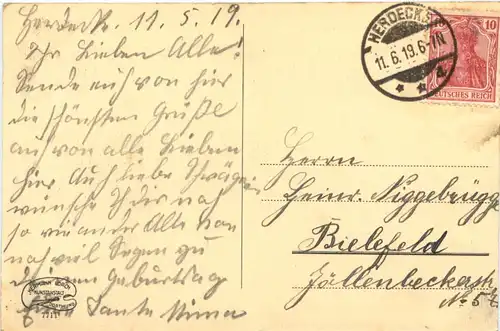 Herdecke. 11.5.19.
Ihr Lieben Alle!
Sende euch von hier
die schönsten Grüße
an von alle Lieben
hier Auch liebe Schwägerin
wünsche ich dir noch
so wie unser Alle von
noch viel Segen zu
deinem Geburtstag
Tante Minna
HERDECKE
11.6.19.6-7N
10
DEUTSCHES REICH
Herrn
Heinr. Niggebrügge
Bielefeld
Jöllenbeckerstr
No 5